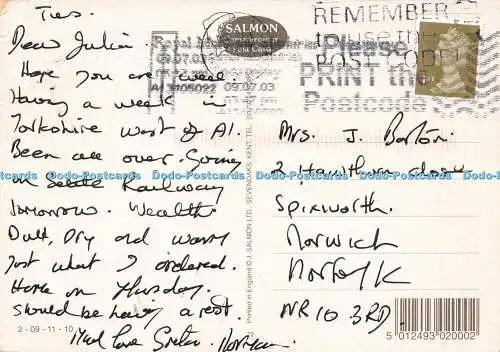 Tues.
Dear Julia.
Hope you are well.
Having a week in
Yorkshire west of A1.
Been all over. Going
on Settle Railway
tomorrow. Weather
Dull, Dry and warm
just what I ordered.
Home on Thursday.
should be having a rest.
Much love
2-09-11-10
SALMON
Post Card
REMEMBER
to use the
POSTCODE
Please
PRINT the
Postcode
09.07.03
Printed in England © J. SALMON LTD., SEVENOAKS, KENT.
Mrs. J. Barton.
2 Hawthorn Close
Spixworth.
Norwich
Norfolk
NR10 3RD.
5 012493 020002
Dodo-Postcards Dodo-Postcards Dodo-Postcards Dodo-Postcards Dodo-Postcards